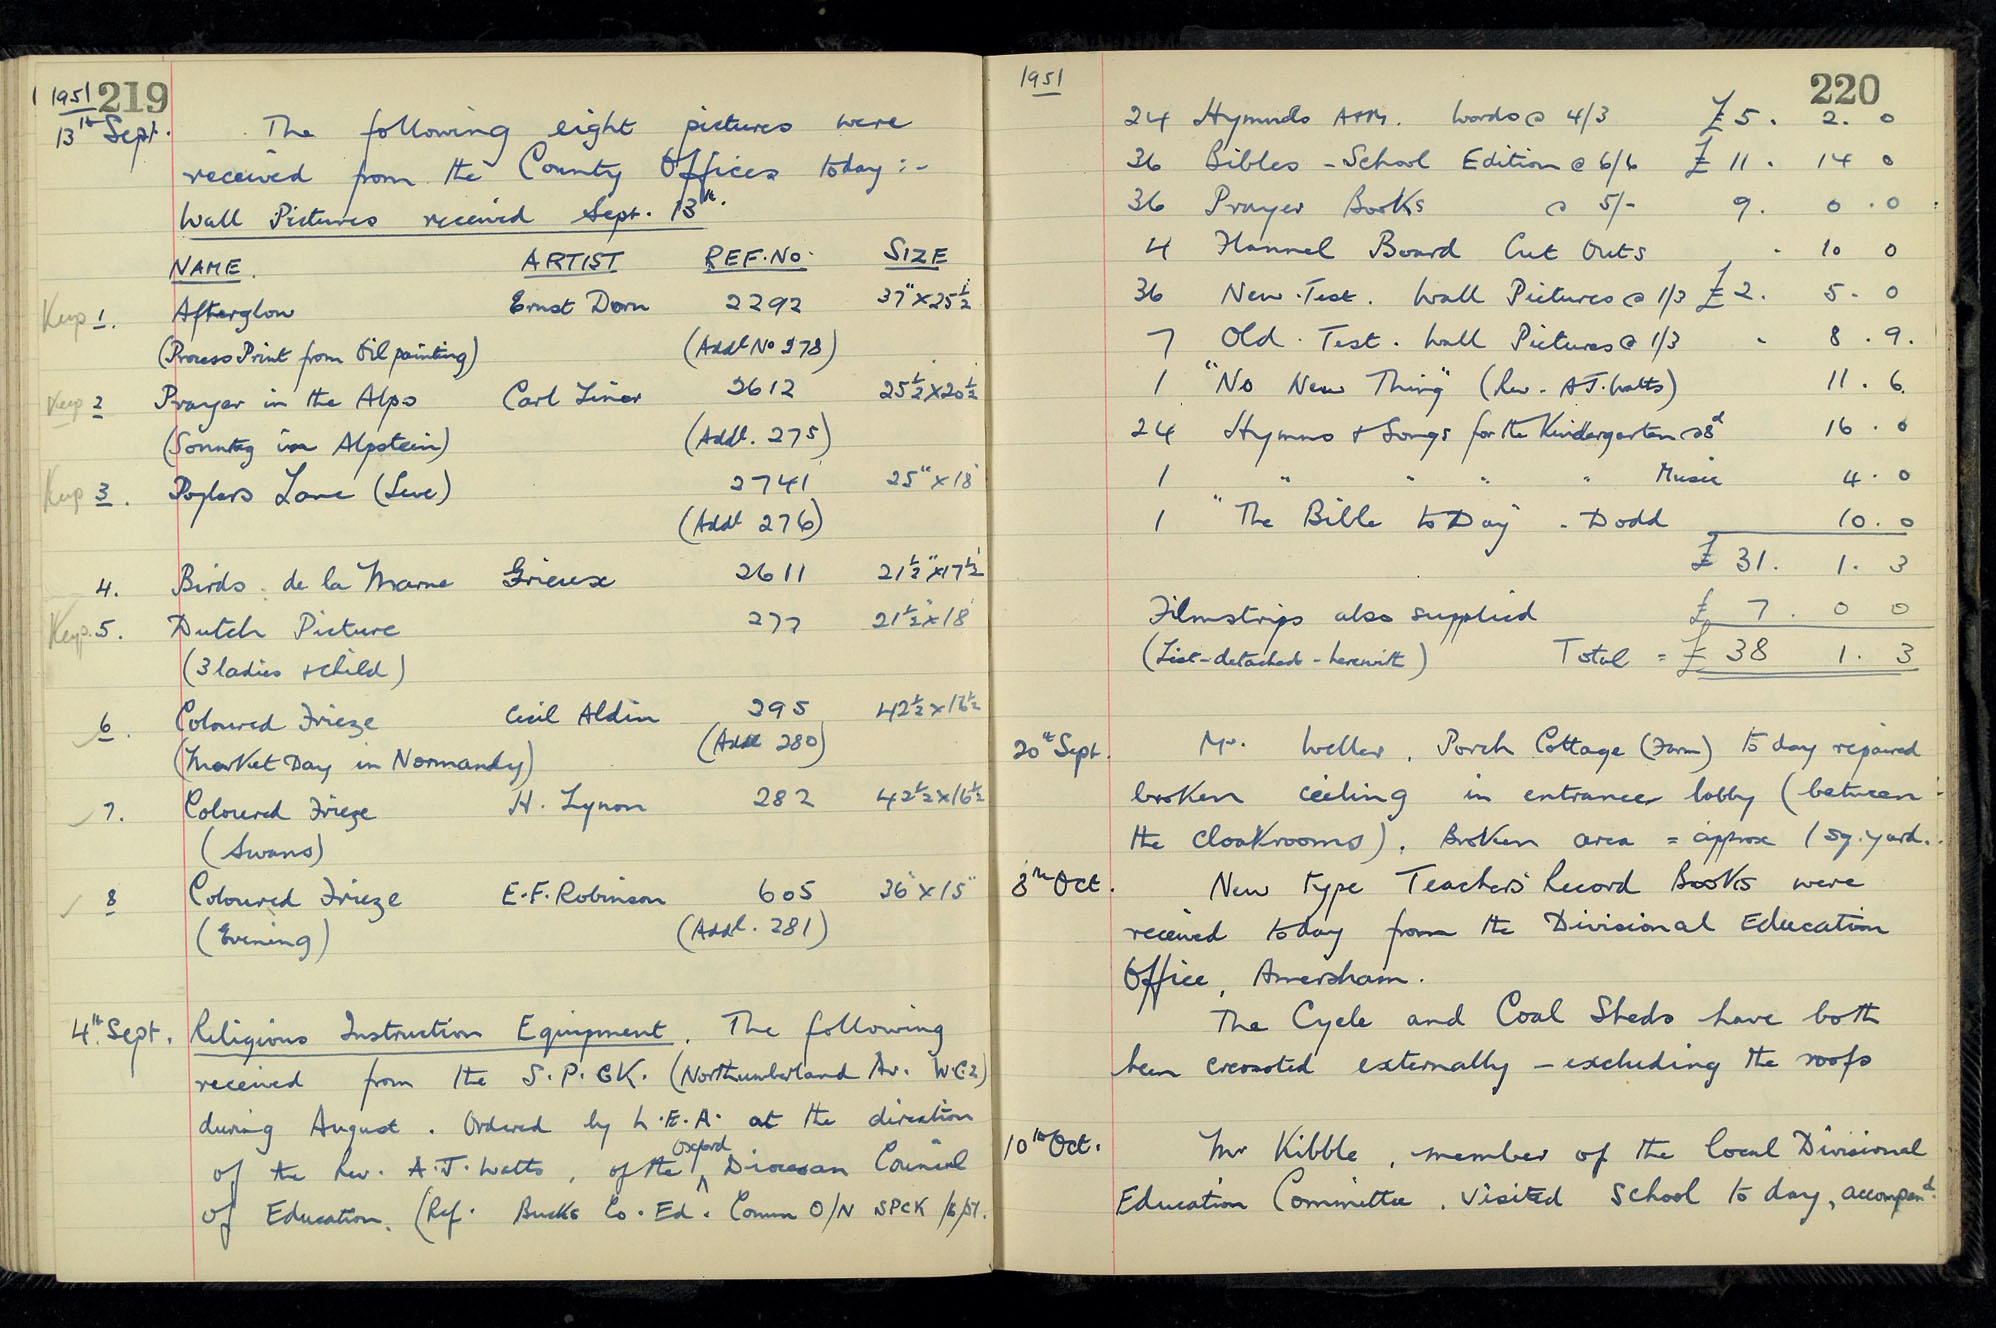 1951 219
13th Sept. The following eight pictures were
received from the County Offices today :-
Wall Pictures received Sept. 13th.
NAME. ARTIST REF.No. SIZE
Keep 1. Afterglow Ernst Dorn 2292 37"x25½
(Process Print from Oil painting) (Addl No 278)
Keep 2 Prayer in the Alps Carl Liner 2612 25½x20½
(Sonntag im Alpstein) (Addl. 275)
Keep 3. Poplars Lane (Leve) 2741 25"x18"
(Addl 276)
4. Birds de la Marne Grieux 2611 21½"x17½
Keep. 5. Dutch Picture 277 21½"x18"
(3 ladies + child)
6. Coloured Frieze Cecil Aldin 295 42½x16½
(Market Day in Normandy) (Addl 280)
7. Coloured Frieze H. Lynon 282 42½x16½
(Swans)
8 Coloured Frieze E.F. Robinson 605 36"x15"
(Evening) (Addl. 281)
4th Sept. Religious Instruction Equipment. The following
received from the S.P.CK. (Northumberland Av. WC2)
during August. Ordered by L.E.A. at the direction
of the Rev. A.J. Watts, of the Oxford Diocesan Council
of Education. (Ref. Bucks Co. Ed. Comm O/N SPCK /6/51.
1951 220
24 Hymnds A+M. Words @ 4/3 £5. 2. 0
36 Bibles - School Edition @ 6/6 £ 11. 14 0
36 Prayer Books @ 5/- 9. 0. 0
4 Flannel Board Cut Outs - 10 0
36 New. Test. Wall Pictures @ 1/3 £2. 5. 0
7 Old. Test. Wall Pictures @ 1/3 - 8. 9.
1 "No New Thing" (Rev. A J. Watts) 11. 6.
24 Hymns + Songs for the Kindergarten @ 8d 16. 0
1 " " " " Music 4. 0
1 "The Bible to Day" - Dodd 10. 0
£ 31. 1. 3
Filmstrips also supplied £ 7. 0 0
(List - detached - herewith) Total = £ 38 1. 3
20th Sept. Mr. Weller, Porch Cottage (Farm) to day repaired
broken ceiling in entrance lobby (between
the cloakrooms). Broken area = approx 1 sq. yard.
8th Oct. New type Teachers' Record Books were
received today from the Divisional Education
Office, Amersham.
The Cycle and Coal Sheds have both
been creosoted externally - excluding the roofs
10th Oct. Mr Kibble, member of the local Divisional
Education Committee, visited school to day, accompand.